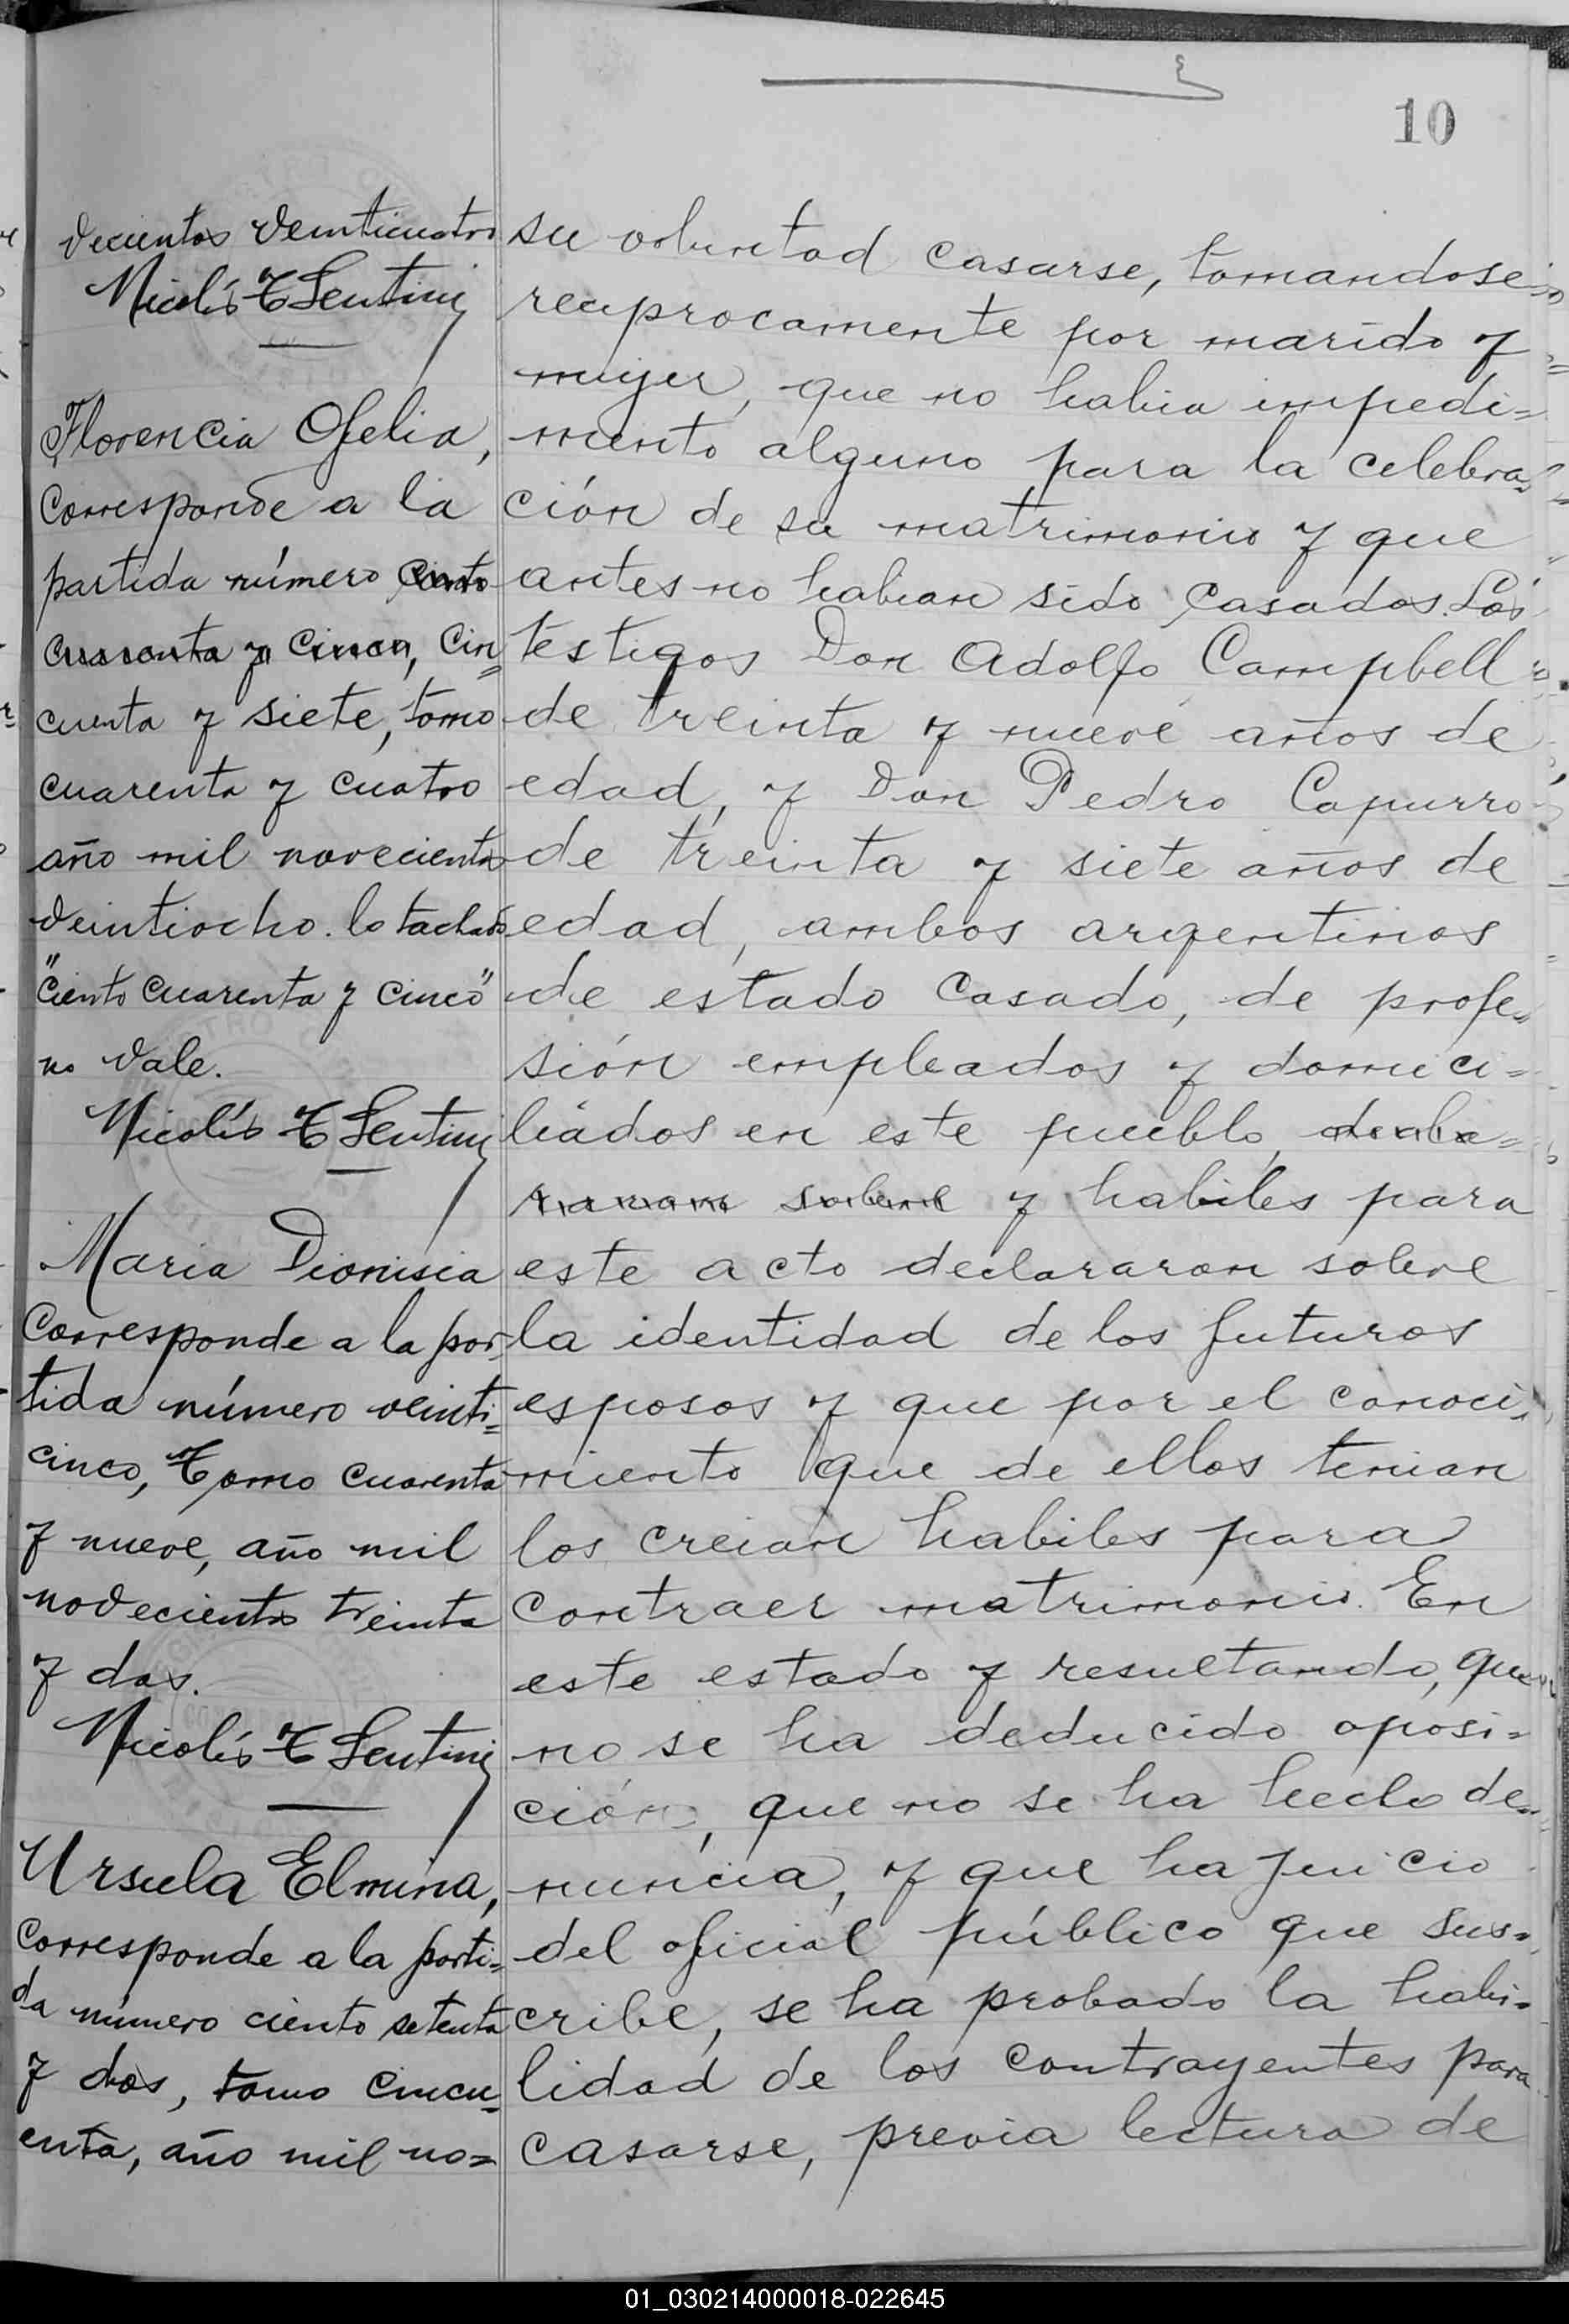 10
vecientos veinticuatro
Nicolás T Sentini
Florencia Ofelia,
Corresponde a la
partida número ciento
cuarenta y cinco, cin=
cuenta y siete, tomo
cuarenta y cuatro
año mil novecientos
veintiocho. lo tachado
"ciento cuarenta y cinco"
no vale.
Nicolás T Sentini
Maria Dionisia
Corresponde a la par=
tida número veinti=
cinco, Tomo cuarenta
y nueve, año mil
novecientos treinta
y dos.
Nicolás T Sentini
Ursula Elmina,
Corresponde a la parti=
da número ciento setenta
y dos, tomo cincu=
enta, año mil no=
su voluntad casarse, tomandose
reciprocamente por marido y
mujer, que no habia impedi=
mento alguno para la celebra=
ción de su matrimonio y que
antes no habian sido casados. Los
testigos Don Adolfo Campbell
de treinta y nueve años de
edad, y Don Pedro Capurro
de treinta y siete años de
edad, ambos argentinos
de estado casado, de profe=
sión empleados y domici=
liados en este pueblo, decla=
raron sobre y habiles para
este acto declararon sobre
la identidad de los futuros
esposos y que por el conoci=
miento que de ellos tenian
los creian habiles para
contraer matrimonio. En
este estado y resultando, que
no se ha deducido oposi=
ción, que no se ha hecho de=
nuncia, y que ha juicio
del oficial público que sus=
cribe, se ha probado la habi=
lidad de los contrayentes para
casarse, previa lectura de
01_030214000018-022645